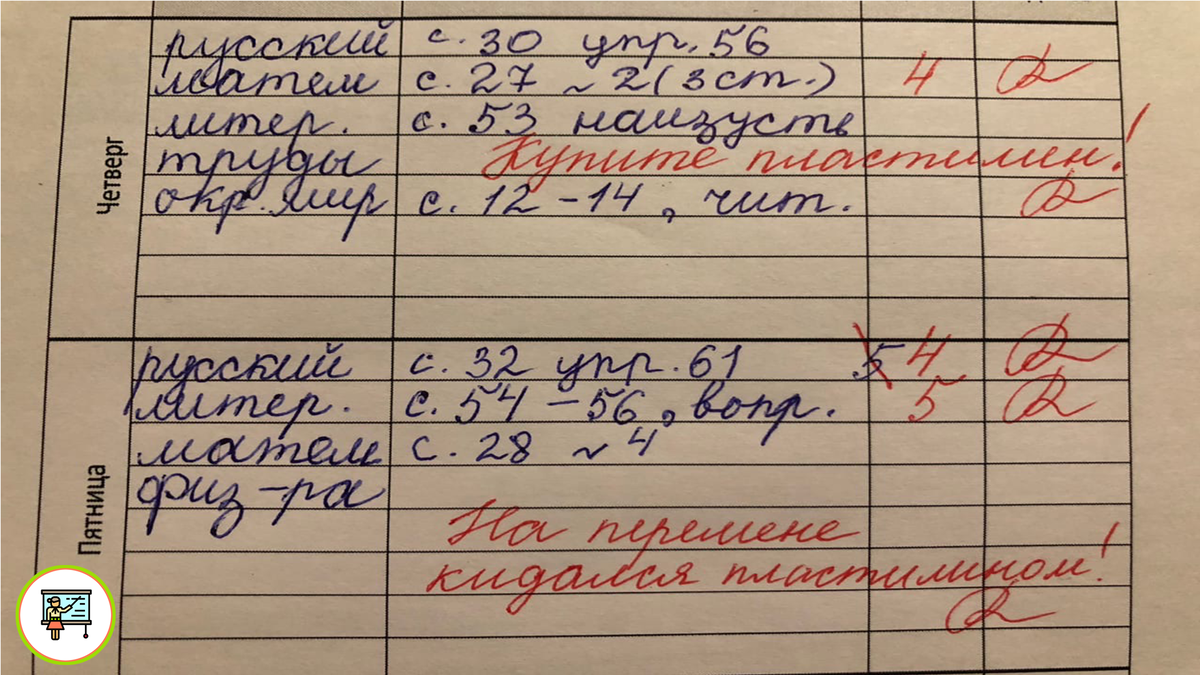 Четверг
русский с. 30 упр. 56
матем с. 27 ~ 2 (3 ст.) 4
литер. с. 53 наизусть
труды Купите пластилин!
окр. мир с. 12 - 14, чит.
Пятница
русский с. 32 упр. 61 5 4
литер. с. 54 - 56, вопр. 5
матем с. 28 ~ 4
физ-ра
На перемене
кидался пластилином!